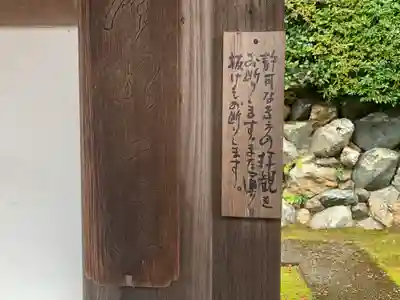 許可なき方の拝観を
お断りします。また通り
抜けもお断りします。